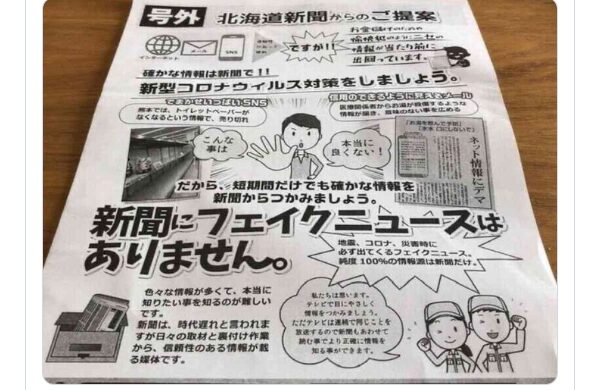 号外 北海道新聞からのご提案
インターネット
メール
SNS
ですが!!
お金儲けのためや
愉快犯のようにニセの
情報が当たり前に
出回っています。
確かな情報は新聞で!!
新型コロナウイルス対策をしましょう。
でまかせいっぱいSNS
熊本では、トイレットペーパーが
なくなるという情報で、売り切れ
信用のできるように見えるメール
医療関係者からお湯が殺菌するような
情報が届き、意味のない事を広める
こんな
事は
本当に
良くない!
「お湯を飲んで予防」
ネット情報にデマ
だから、短期間だけでも確かな情報を
新聞からつかみましょう。
新聞にフェイクニュースは
ありません。
地震、コロナ、災害時に
必ず出てくるフェイクニュース。
純度100%の情報源は新聞だけ。
色々な情報が多くて、本当に
知りたい事を知るのが難しい
です。
新聞は、時代遅れと言われま
すが日々の取材と裏付け作業
から、信頼性のある情報が載
る媒体です。
私たちは思います。
テレビで目にやさしく
情報をつかみましょう。
ただテレビは連続で同じことを
放送するので新聞もあわせて
読む事でより正確に情報を
知る事ができます。